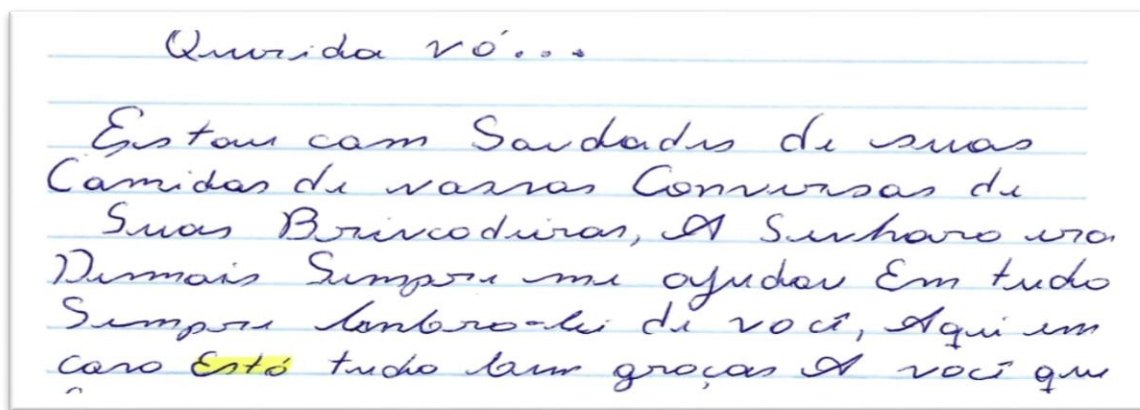 Querida vó...
Estou com Saudades de suas
Comidas de nossas Conversas de
Suas Brincadeiras, A Senhora era
Demais Sempre me ajudou Em tudo
Sempre lembro-lei de você, Aqui em
casa Está tudo bem graças A você que